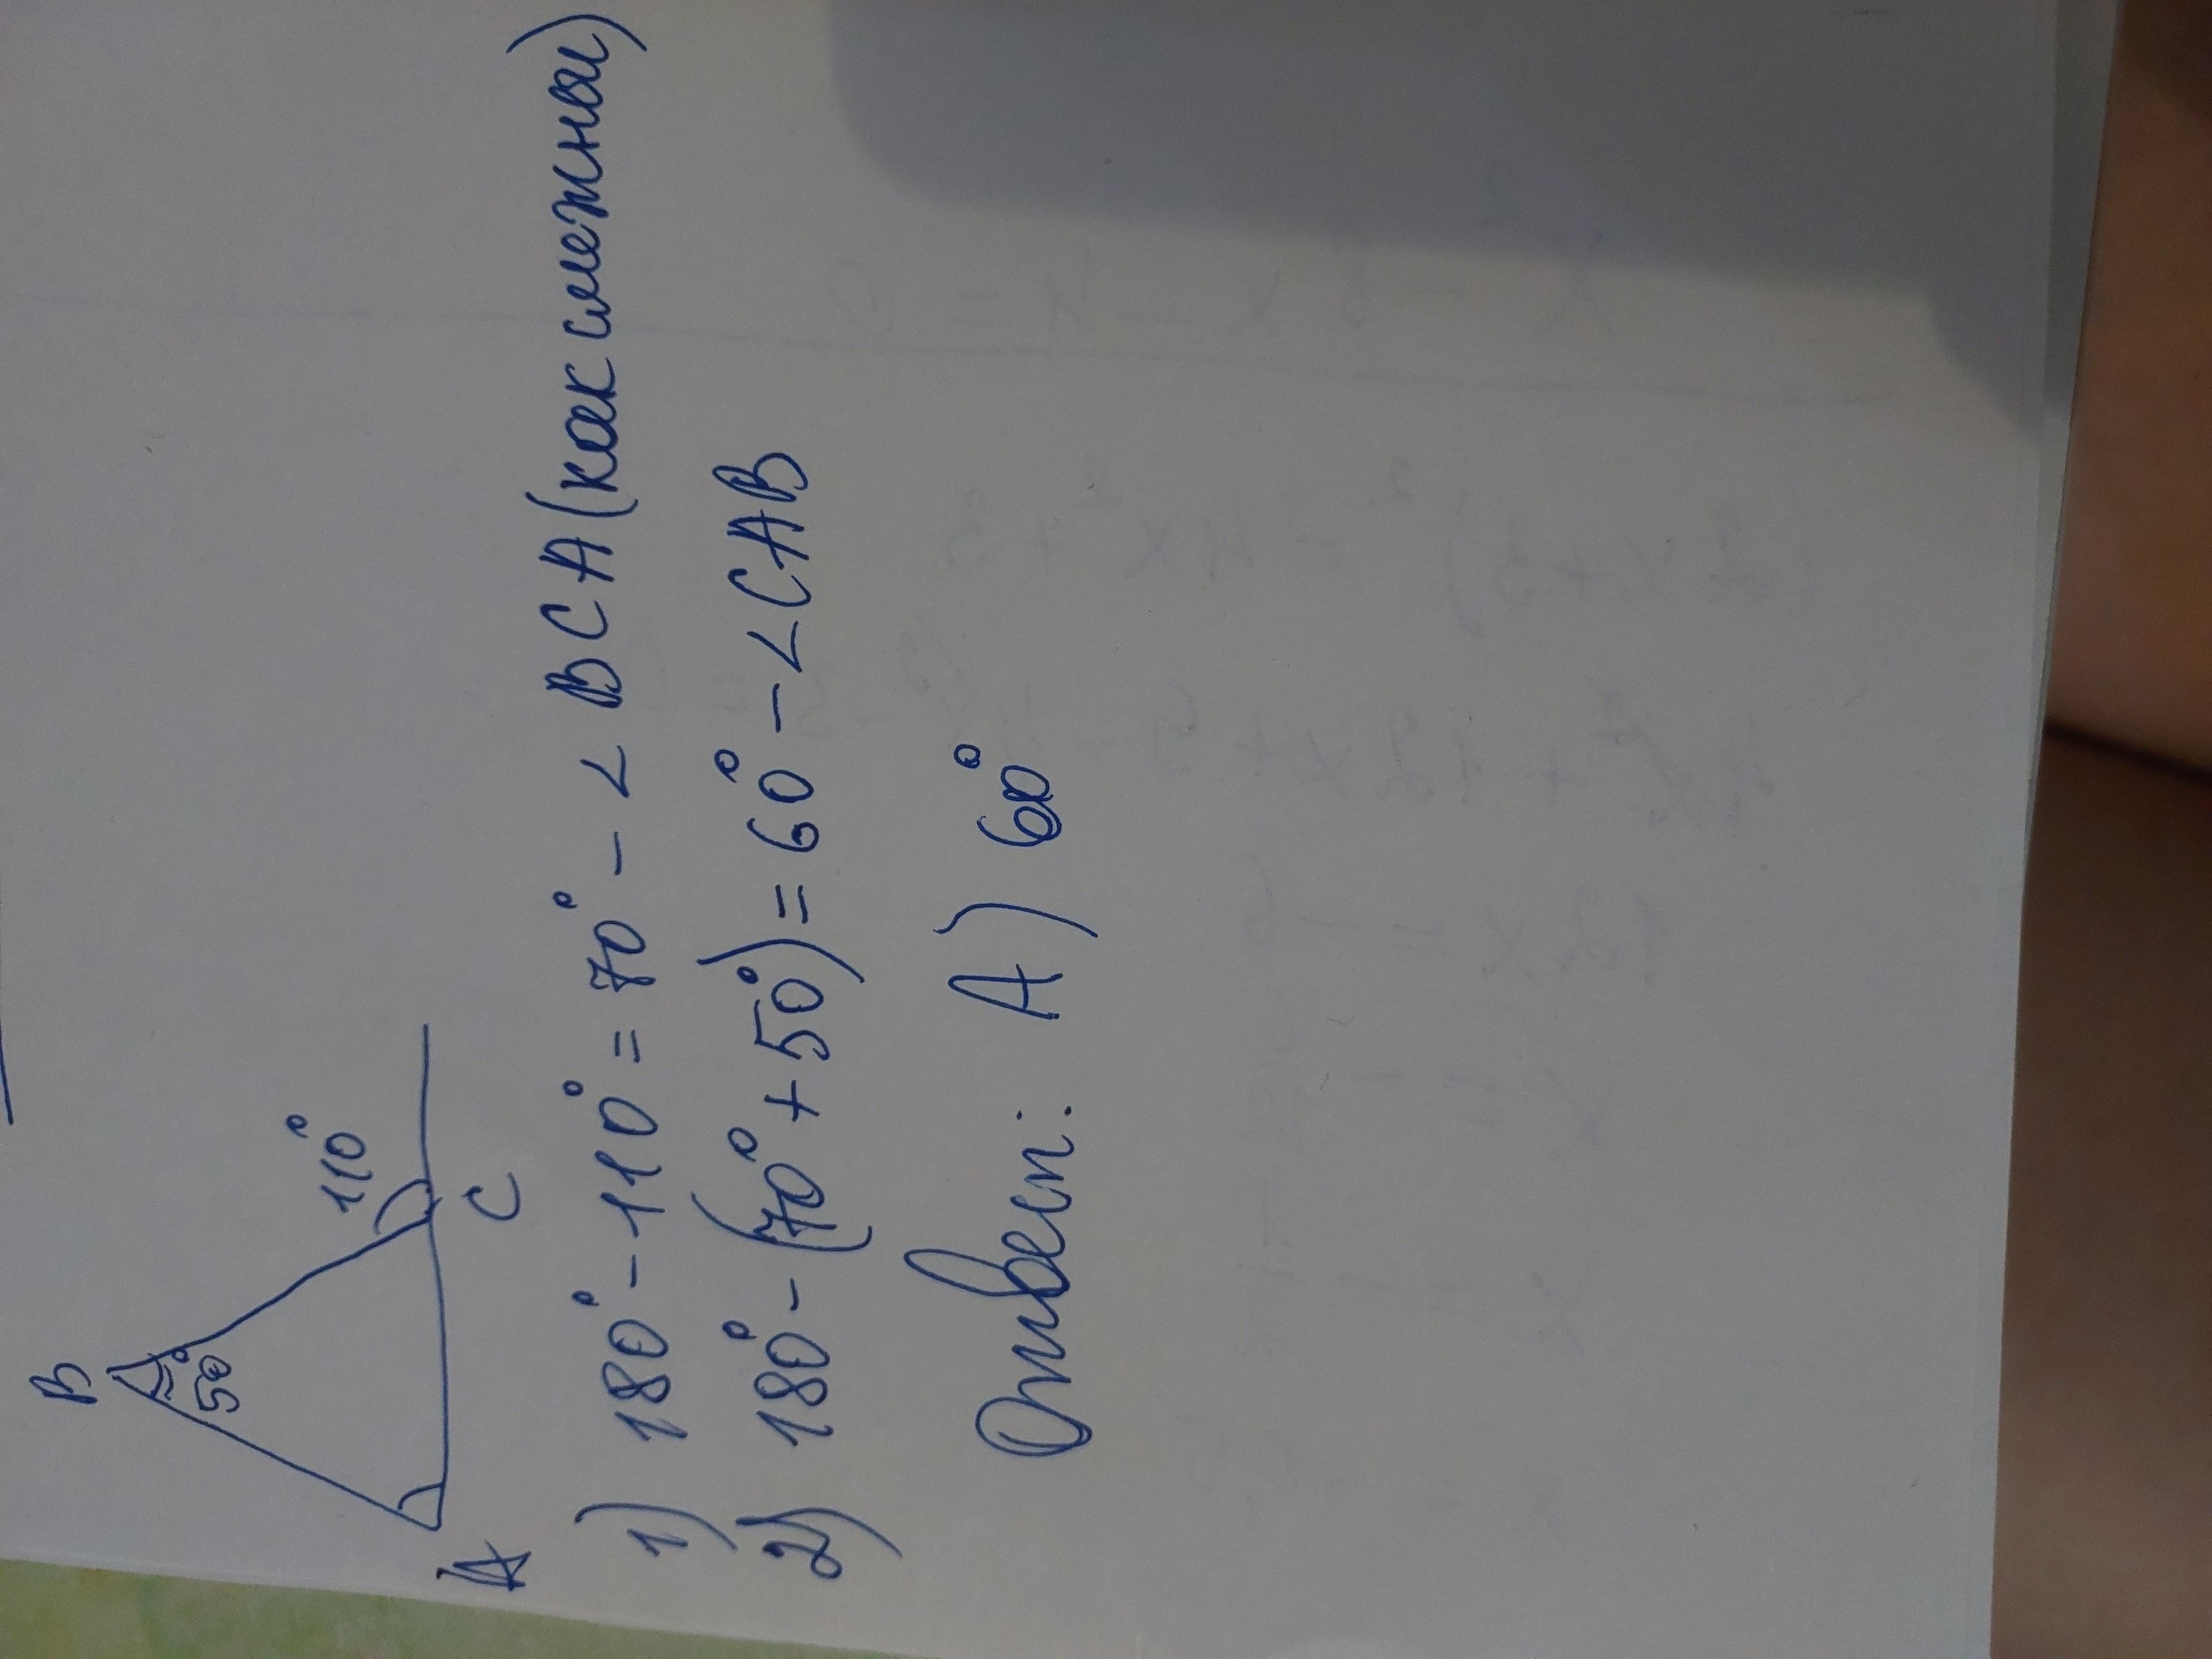 B
50°
110°
A
C
1) 180° - 110° = 70° - < BCA (как смежный)
2) 180° - (70° + 50°) = 60° - < CAB
Ответ: А) 60°